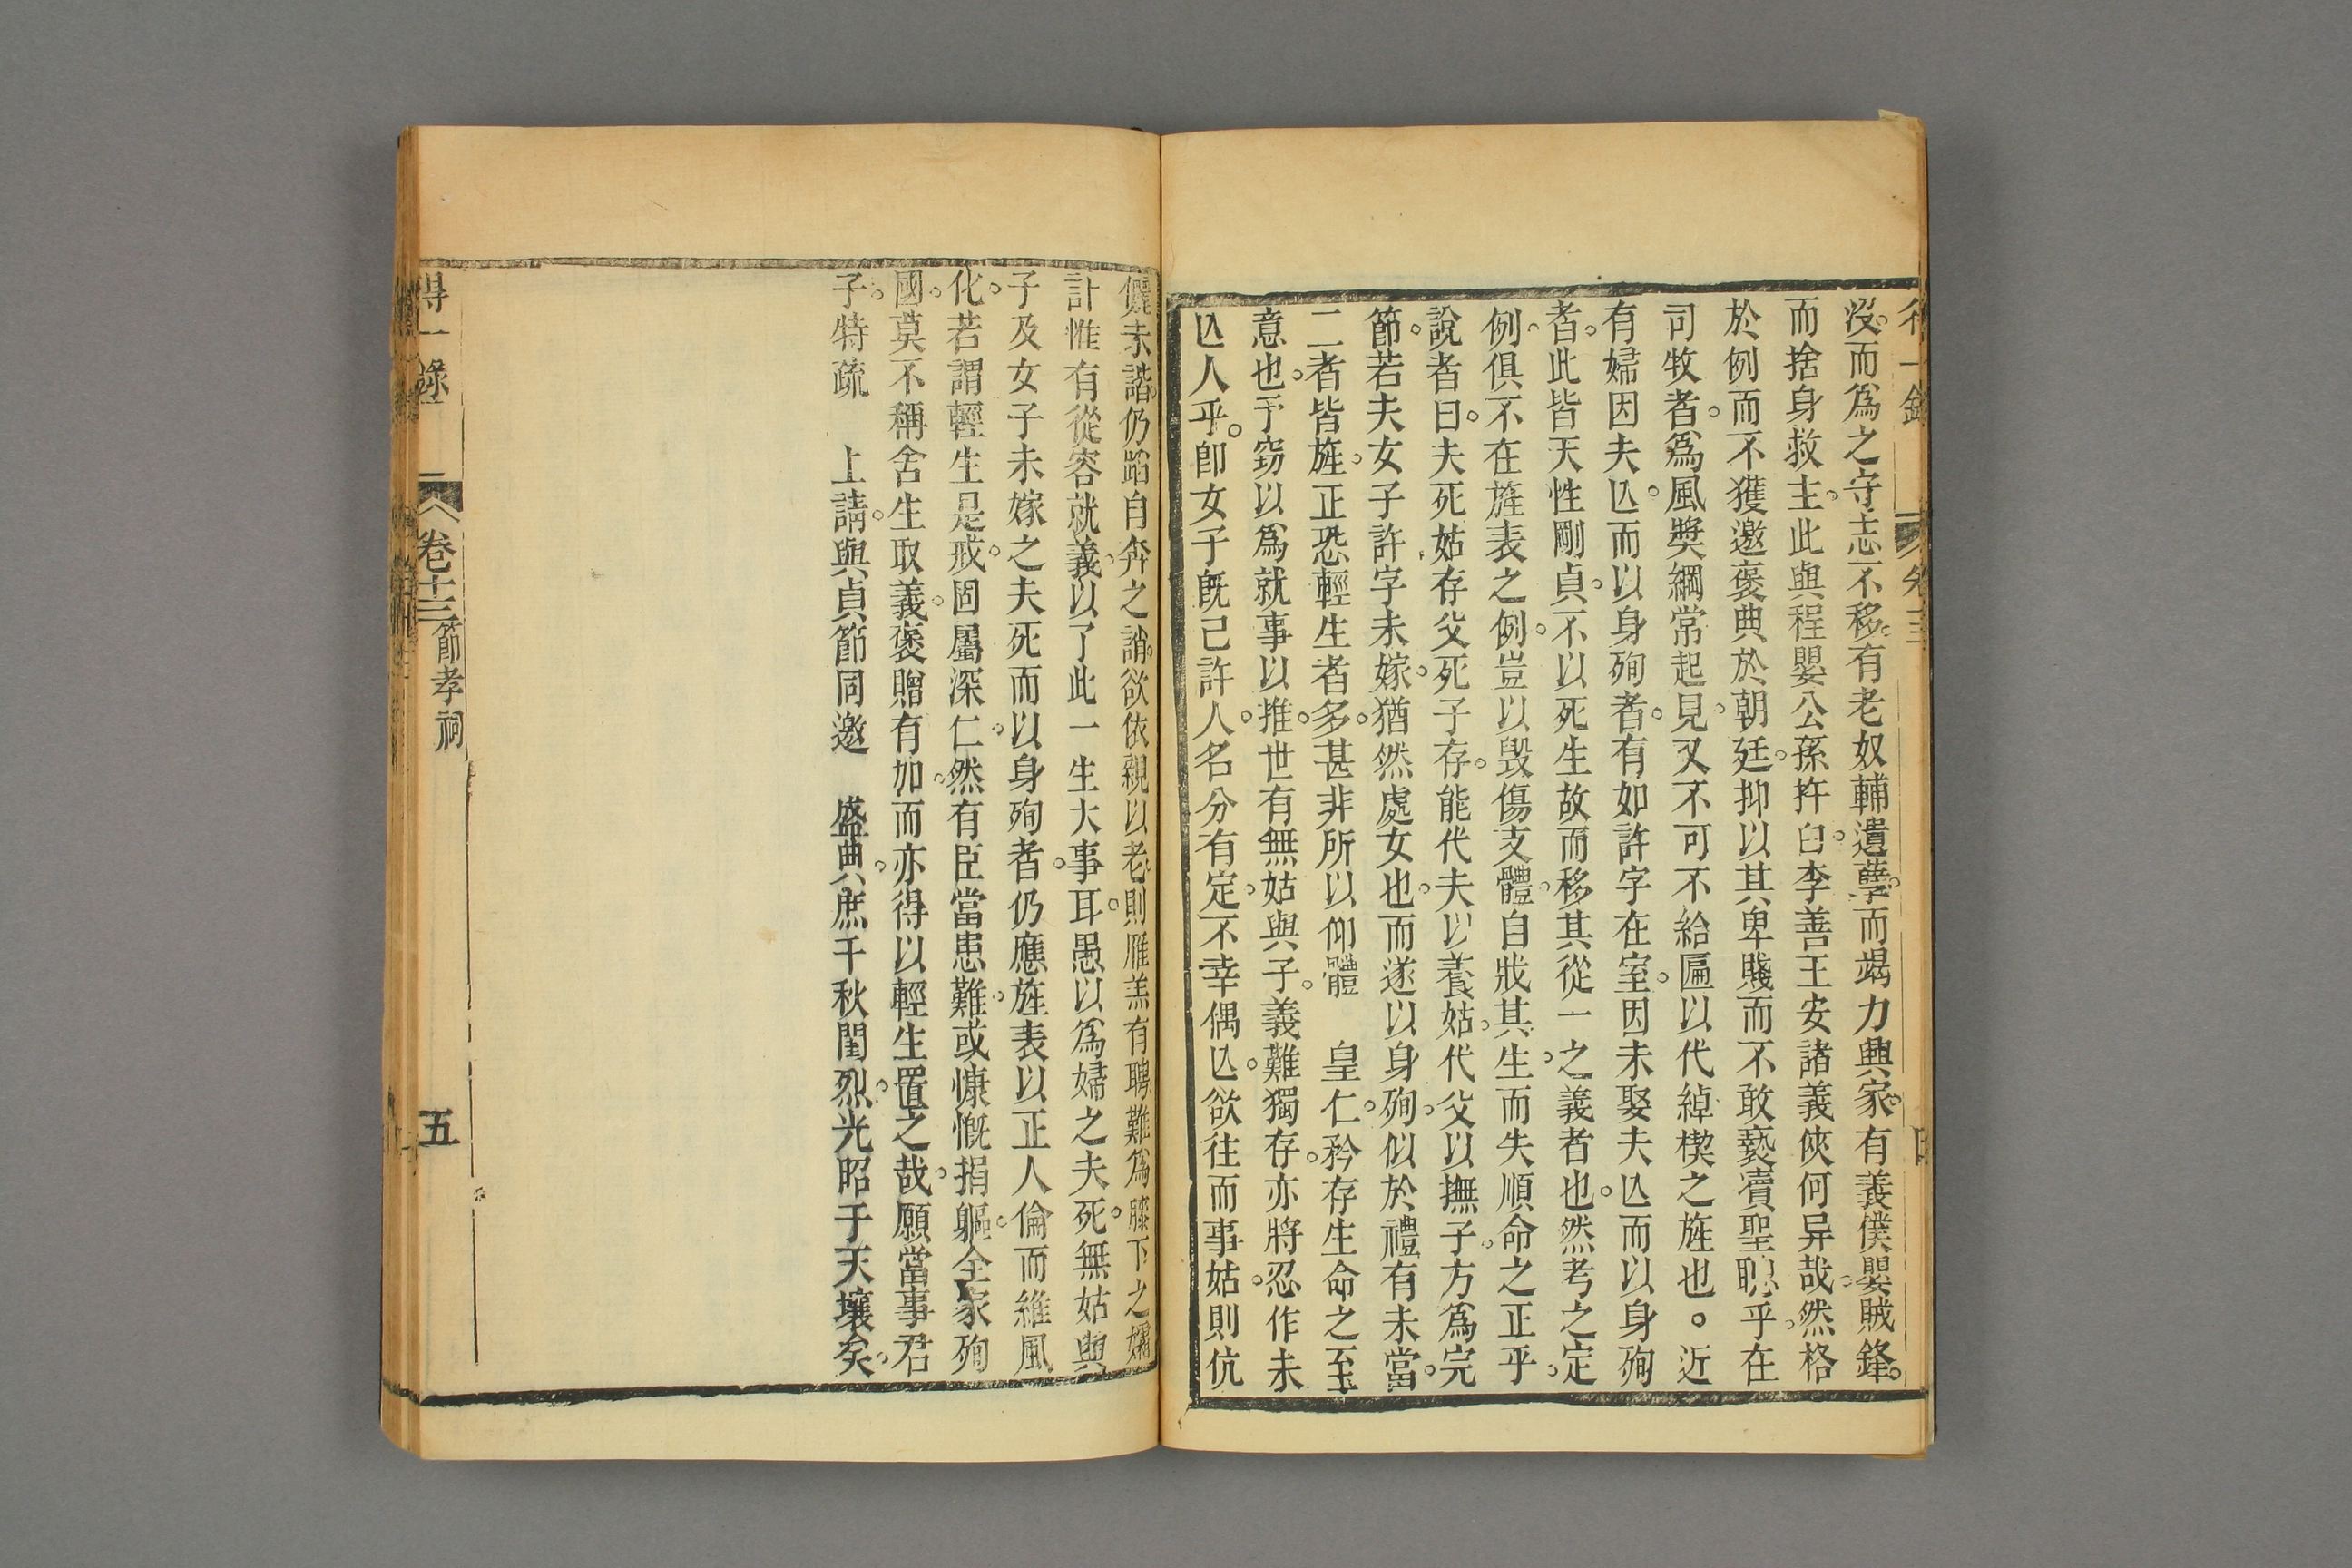 沒而爲之守志不移。有老奴輔遺孽。而竭力興家。有義僕嬰賊鋒。
而捨身救主。此與程嬰公孫杵臼。李善王安諸義俠何异哉。然格
於例而不獲邀褒典於朝廷。抑以其卑賤而不敢褻瀆聖聰乎。在
司牧者。爲風獎綱常起見。又不可不給匾以代綽楔之旌也。近
有婦因夫亾。而以身殉者。有如許字在室。因未娶夫亾而以身殉
者。此皆天性剛貞。不以死生故而移其從一之義者也。然考之定
例。俱不在旌表之例。豈以毀傷支體。自戕其生。而失順命之正乎。
說者曰。夫死姑存。父死子存。能代夫以養姑。代父以撫子。方爲完
節。若夫女子許字未嫁。猶然處女也。而遂以身殉。似於禮有未當。
二者皆旌。正恐輕生者多。甚非所以仰體　皇仁。矜存生命之至
意也。予窃以爲就事以推。世有無姑與子。義難獨存。亦將忍作未
亾人乎。卽女子旣已許人。名分有定。不幸偶亾。欲往而事姑。則伉
儷未諧。仍蹈自奔之誚。欲依親以老。則雁羔有聘。難爲膝下之孀。
計惟有從容就義。以了此一生大事耳。愚以爲婦之夫死。無姑與
子。及女子未嫁之夫死而以身殉者。仍應旌表以正人倫而維風
化。若謂輕生是戒。固屬深仁。然有臣當患難。或慷慨捐軀。全家殉
國。莫不稱舍生取義。褒贈有加。而亦得以輕生置之哉。願當事君
子。特疏　上請。與貞節同邀　盛典。庶千秋閨烈。光昭于天壤矣。
得一錄　卷十三 節孝祠　五